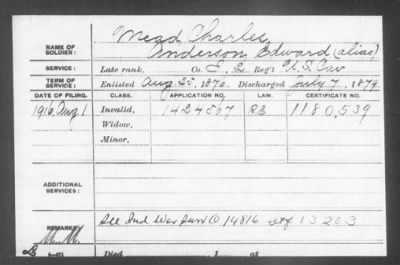 Mead Charles,
NAME OF SOLDIER: Anderson, Edward (alias)
SERVICE: Late rank, Co. E, 2 Reg't U.S. Cav
TERM OF SERVICE: Enlisted Aug. 25, 1870. Discharged July 7, 1879
DATE OF FILING. CLASS. APPLICATION NO. LAW. CERTIFICATE NO.
1916, Aug. 1 Invalid, 1424507 1180,539
Widow,
Minor,
ADDITIONAL SERVICES:
See Ind War Surv O 14816 ctf 13203
REMARKS:
Died , 1 , at